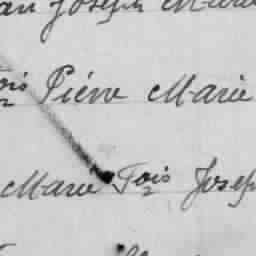 an Joseph Marie
ois Piérre Marie
Marie Fois Joseph